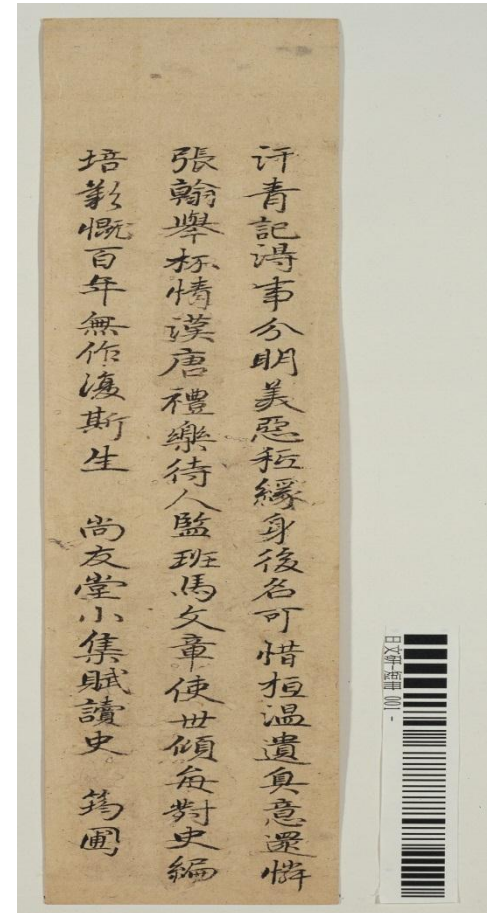 汗青記得事分明美惡秪緣身後名可惜桓温遺臭意還憐
張翰舉杯情漢唐禮樂待人監班馬文章使世傾每對史編
培歎慨百年無作復斯生　尚友堂小集賦讀史　筠圃
日文研-短冊 001 -